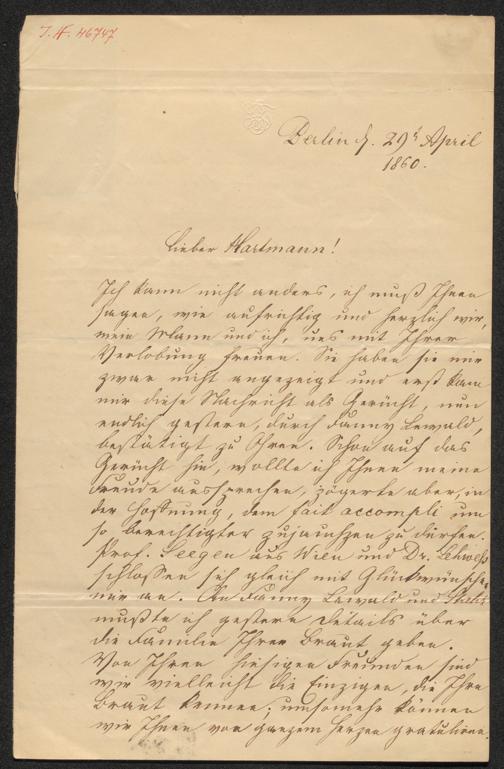 J. N. 46747
Berlin d. 29t April
1860.
Lieber Hartmann!
Ich kann nicht anders, ich muß Ihnen
sagen, wie aufrichtig und herzlich wir,
mein Mann und ich, uns mit Ihrer
Verlobung freuen. Sie haben sie mir
zwar nicht angezeigt und erst kam
mir diese Nachricht als Gerücht, nun
endlich gestern, durch Fanny Lewald,
bestätigt zu Ohren. Schon auf das
Gerücht hin, wollte ich Ihnen meine
Freude aussprechen, zögerte aber, in
der Hoffnung, dem fait accompli um
so berechtigter zujauchzen zu dürfen.
Prof. Seegen aus Wien und Dr.
schlossen sich gleich mit Glückwünschen
mir an. An Fanny Lewald und Stahr
mußte ich gestern Details über
die Familie Ihrer Braut geben.
Von Ihren hiesigen Freunden sind
wir vielleicht die Einzigen, die Ihre
Braut kennen; umsomehr können
wir Ihnen von ganzem Herzen gratuliren.